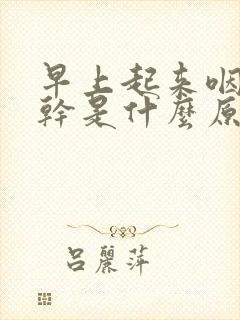 早上起来咽
幹是什麼原
吕麗萍